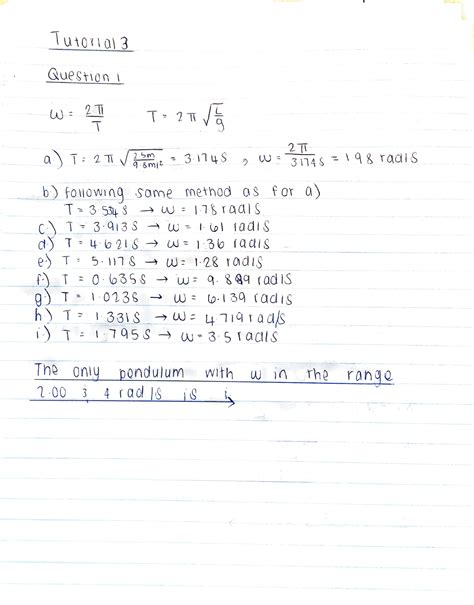 Tutorial 3
Question 1
ω = 2π/T T = 2π √(L/g)
a) T = 2π √(2.5m/9.8m/s²) = 3.174s , ω = 2π/3.174s = 1.98 rad/s
b) following same method as for a)
T = 3.534s → ω = 1.78 rad/s
c) T = 3.913s → ω = 1.61 rad/s
d) T = 4.621s → ω = 1.36 rad/s
e) T = 5.117s → ω = 1.28 rad/s
f) T = 0.635s → ω = 9.889 rad/s
g) T = 1.023s → ω = 6.139 rad/s
h) T = 1.331s → ω = 4.719 rad/s
i) T = 1.795s → ω = 3.5 rad/s
The only pendulum with ω in the range
2.00 & 4 rad/s is i